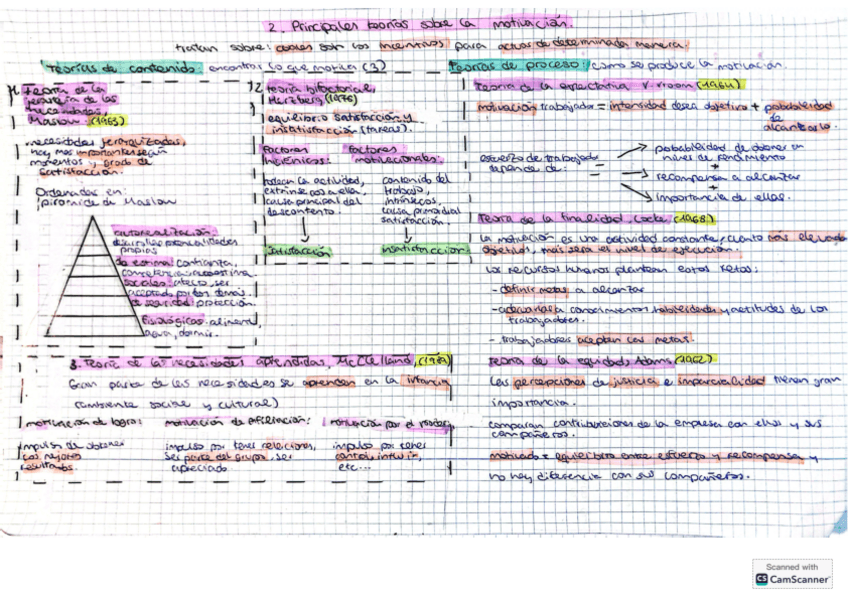 2. Principales teorías sobre la motivación.
tratan sobre: cuales son los incentivos para actuar de determinada manera.
Teorías de contenido: encontrar lo que motiva (3)
Teorías de proceso: como se produce la motivación.
1. Teoría de la
jerarquía de las
necesidades
Maslow. (1963)
necesidades jerarquizadas,
hay mas importantes según
momentos y grado de
satisfacción.
Ordenadas en:
piramide de Maslow
autorrealización
desarrollar potencialidades
propias
de estima: confianza,
competencia, autoestima.
sociales: afecto, ser
aceptado por los demás.
de seguridad: protección.
fisiológicas: alimento,
agua, dormir.
2 teoría bifactorial,
Herzberg (1976)
equilibrio satisfacción y
insatisfacción (tareas).
Factores
higiénicos:
factores
motivacionales:
rodean la actividad,
extrínsecos a ella,
causa principal del
descontento.
contenido del
trabajo,
intrínsecos,
causa primordial
satisfacción.
satisfacción
insatisfaccion
3. Teoría de las necesidades aprendidas, McClelland, (1989)
Gran parte de las necesidades se aprenden en la infancia
(ambiente social y cultural)
motivación de logro:
impulso de obtener
los mejores
resultados.
motivación de afiliación:
impulso por tener relaciones,
ser parte del grupo, ser
apreciado
motivación por el poder:
impulso por tener
control, influir,
etc...
Teoría de la expectativa Vroom (1964)
motivación trabajador = intensidad desea objetivo + probabilidad
de
alcanzarlo.
esfuerzo de trabajador
depende de:
probabilidad de obtener un
nivel de rendimiento
+
recompensa a alcanzar
+
importancia de ellas.
Teoría de la finalidad, Locke, (1968)
La motivación es una actividad constante, cuanto más elevado
objetivos, mas sera el nivel de ejecución.
Los recursos humanos plantean estos retos:
- definir metas a alcanzar
- adecuarlas a conocimientos habilidades y actitudes de los
trabajadores.
- trabajadores acepten las metas.
Teoría de la equidad, Adams (1962)
Las percepciones de justicia e imparcialidad tienen gran
importancia.
comparan contribuciones de la empresa con ellos y sus
compañeros.
motivado = equilibrio entre esfuerzo y recompensa y
no hay diferencia con sus compañeros.
Scanned with
CS CamScanner